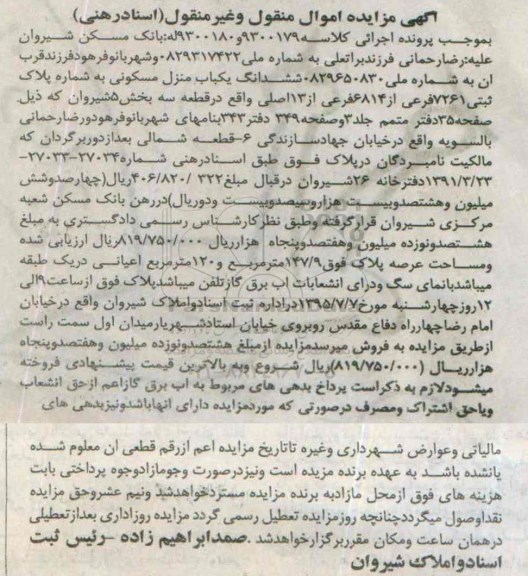 آگهی مزایده اموال منقول وغیرمنقول(اسنادرهنی)
بموجب پرونده اجرائی کلاسه۹۳۰۰۱۷۹و۹۳۰۰۱۸۰له:بانک مسکن شیروان
علیه:رضارحمانی فرزندبراتعلی به شماره ملی۰۸۲۹۳۱۷۴۲۲وشهربانوفرهودفرزندقرب
ان به شماره ملی۰۸۲۹۶۵۰۸۳۰ششدانگ یکباب منزل مسکونی به شماره پلاک
ثبتی۷۲۶۱فرعی از۶۸۱۴فرعی از۱۳اصلی واقع درقطعه سه بخش۵شیروان که ذیل
صفحه۳۵دفتر متمم جلد۳وصفحه۳۴۹ دفتر۳۴۳بنامهای شهربانوفرهودورضارحمانی
بالسویه واقع درخیابان جهادسازندگی ۶-قطعه شمالی بعدازدوربرگردان که
مالکیت نامبردگان درپلاک فوق طبق اسنادرهنی شماره۲۷۰۳۴-۲۷۰۳۳-
۱۳۹۱/۳/۲۳دفترخانه ۲۶شیروان درقبال مبلغ۳۲۲ /۴۰۶/۸۲۰ریال(چهارصدوشش
میلیون وهشتصدوبیست هزاروسیصدوبیست ودوریال)دررهن بانک مسکن شعبه
مرکزی شیروان قرارگرفته وطبق نظرکارشناس رسمی دادگستری به مبلغ
هشتصدونوزده میلیون وهفتصدوپنجاه هزارریال۸۱۹/۷۵۰/۰۰۰ریال ارزیابی شده
ومساحت عرصه پلاک فوق۱۴۷/۹مترمربع و۱۲۰مترمربع اعیانی دریک طبقه
میباشدبانمای سگ ودرای انشعابات اب برق گازتلفن میباشدپلاک فوق ازساعت۹الی
۱۲روزچهارشنبه مورخ۱۳۹۵/۷/۷دراداره ثبت اسنادواملاک شیروان واقع درخیابان
امام رضاچهارراه دفاع مقدس روبروی خیابان استادشهریارمیدان اول سمت راست
ازطریق مزایده به فروش میرسدمزایده ازمبلغ هشتصدونوزده میلیون وهفتصدوپنجاه
هزارریال (۸۱۹/۷۵۰/۰۰۰)ریال شروع وبه بالاترین قیمت پیشنهادی فروخته
میشودلازم به ذکراست پرداخ بدهی های مربوط به اب برق گازاعم ازحق انشعاب
ویاحق اشتراک ومصرف درصورتی که موردمزایده دارای انهاباشدونیزبدهی های
مالیاتی وعوارض شهرداری وغیره تاتاریخ مزایده اعم ازرقم قطعی ان معلوم شده
یانشده باشد به عهده برنده مزیده است ونیزدرصورت وجومازادوجوه پرداختی بابت
هزینه های فوق ازمحل مازادبه برنده مزایده مستردخواهدشد ونیم عشروحق مزایده
نقداوصول میگرددچنانچه روزمزایده تعطیل رسمی گردد مزایده روزاداری بعدازتعطیلی
درهمان ساعت ومکان مقرربرگزارخواهدشد .صمدابراهیم زاده -رئیس ثبت
اسنادواملاک شیروان